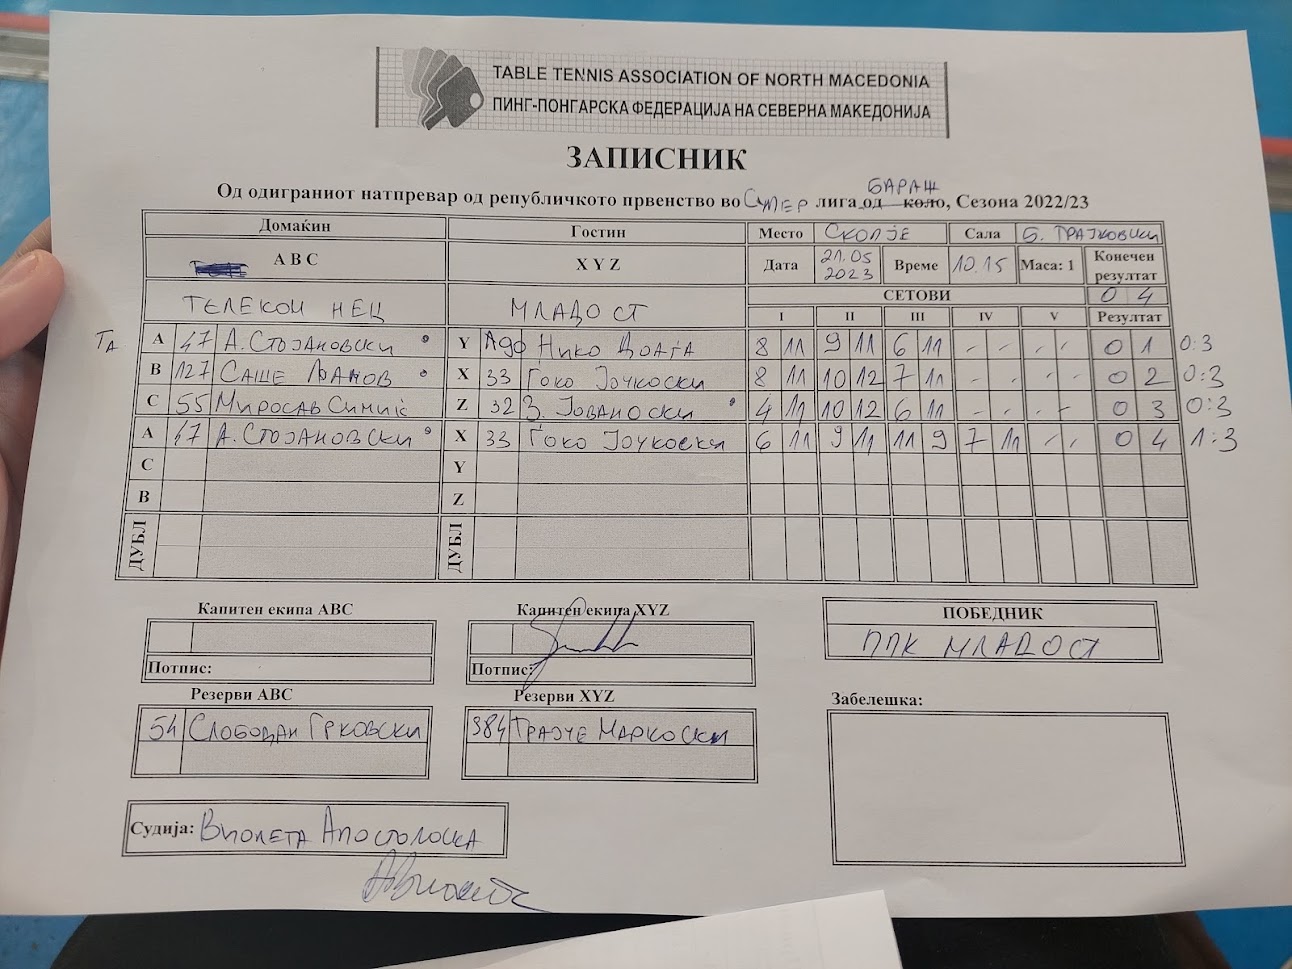 TABLE TENNIS ASSOCIATION OF NORTH MACEDONIA
ПИНГ-ПОНГАРСКА ФЕДЕРАЦИЈА НА СЕВЕРНА МАКЕДОНИЈА
ЗАПИСНИК
БАРАЖ
Од одиграниот натпревар од републичкото првенство во СУПЕР лига од коло, Сезона 2022/23
Домаќин Гостин Место СКОПЈЕ Сала Б. ТРАЈКОВСКИ
A B C X Y Z Дата 21.05 2023 Време 10.15 Маса: 1 Конечен резултат
ТЕЛЕКОМ НЕЦ МЛАДОСТ СЕТОВИ 0 4
I II III IV V Резултат
A 47 А. СТОЈАНОВСКИ Y НИКО 8 11 9 11 6 11 - - - - 0 1 0:3
B 127 САШЕ X 33 ЃОКО ЈОЧКОСКИ 8 11 10 12 7 11 - - - - 0 2 0:3
C 55 МИРОСЛАВ СИМИЌ Z 32 З. ЈОВАНОСКИ 4 11 10 12 6 11 - - - - 0 3 0:3
A 47 А. СТОЈАНОВСКИ X 33 ЃОКО ЈОЧКОСКИ 6 11 9 11 11 9 7 11 - - 0 4 1:3
C Y
B Z
ДУБЛ ДУБЛ
Капитен екипа ABC Капитен екипа XYZ ПОБЕДНИК
ППК МЛАДОСТ
Потпис: Потпис:
Резерви ABC Резерви XYZ Забелешка:
54 СЛОБОДАН ГРКОВСКИ 384 ТРАЈЧЕ МАРКОСКИ
Судија: ВИОЛЕТА АПОСТОЛОСКА